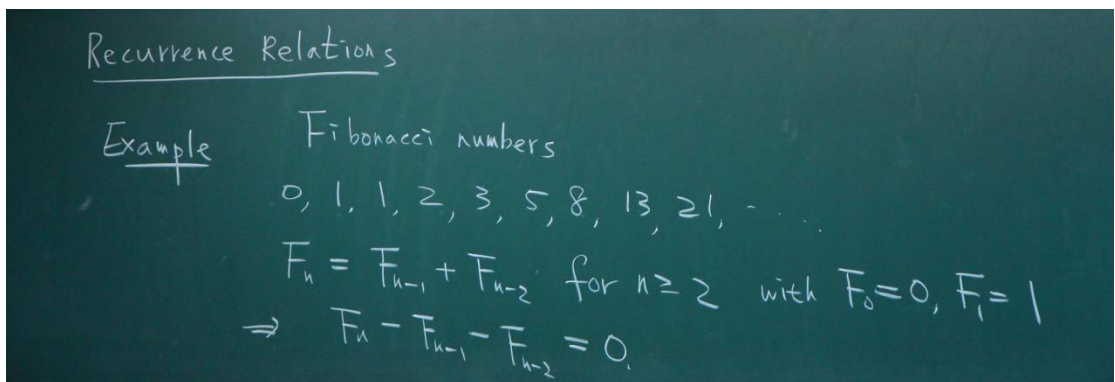 Recurrence Relations
Example Fibonacci numbers
0, 1, 1, 2, 3, 5, 8, 13, 21, .....
Fₙ = Fₙ₋₁ + Fₙ₋₂ for n ≥ 2 with F₀ = 0, F₁ = 1
⇒ Fₙ − Fₙ₋₁ − Fₙ₋₂ = 0.